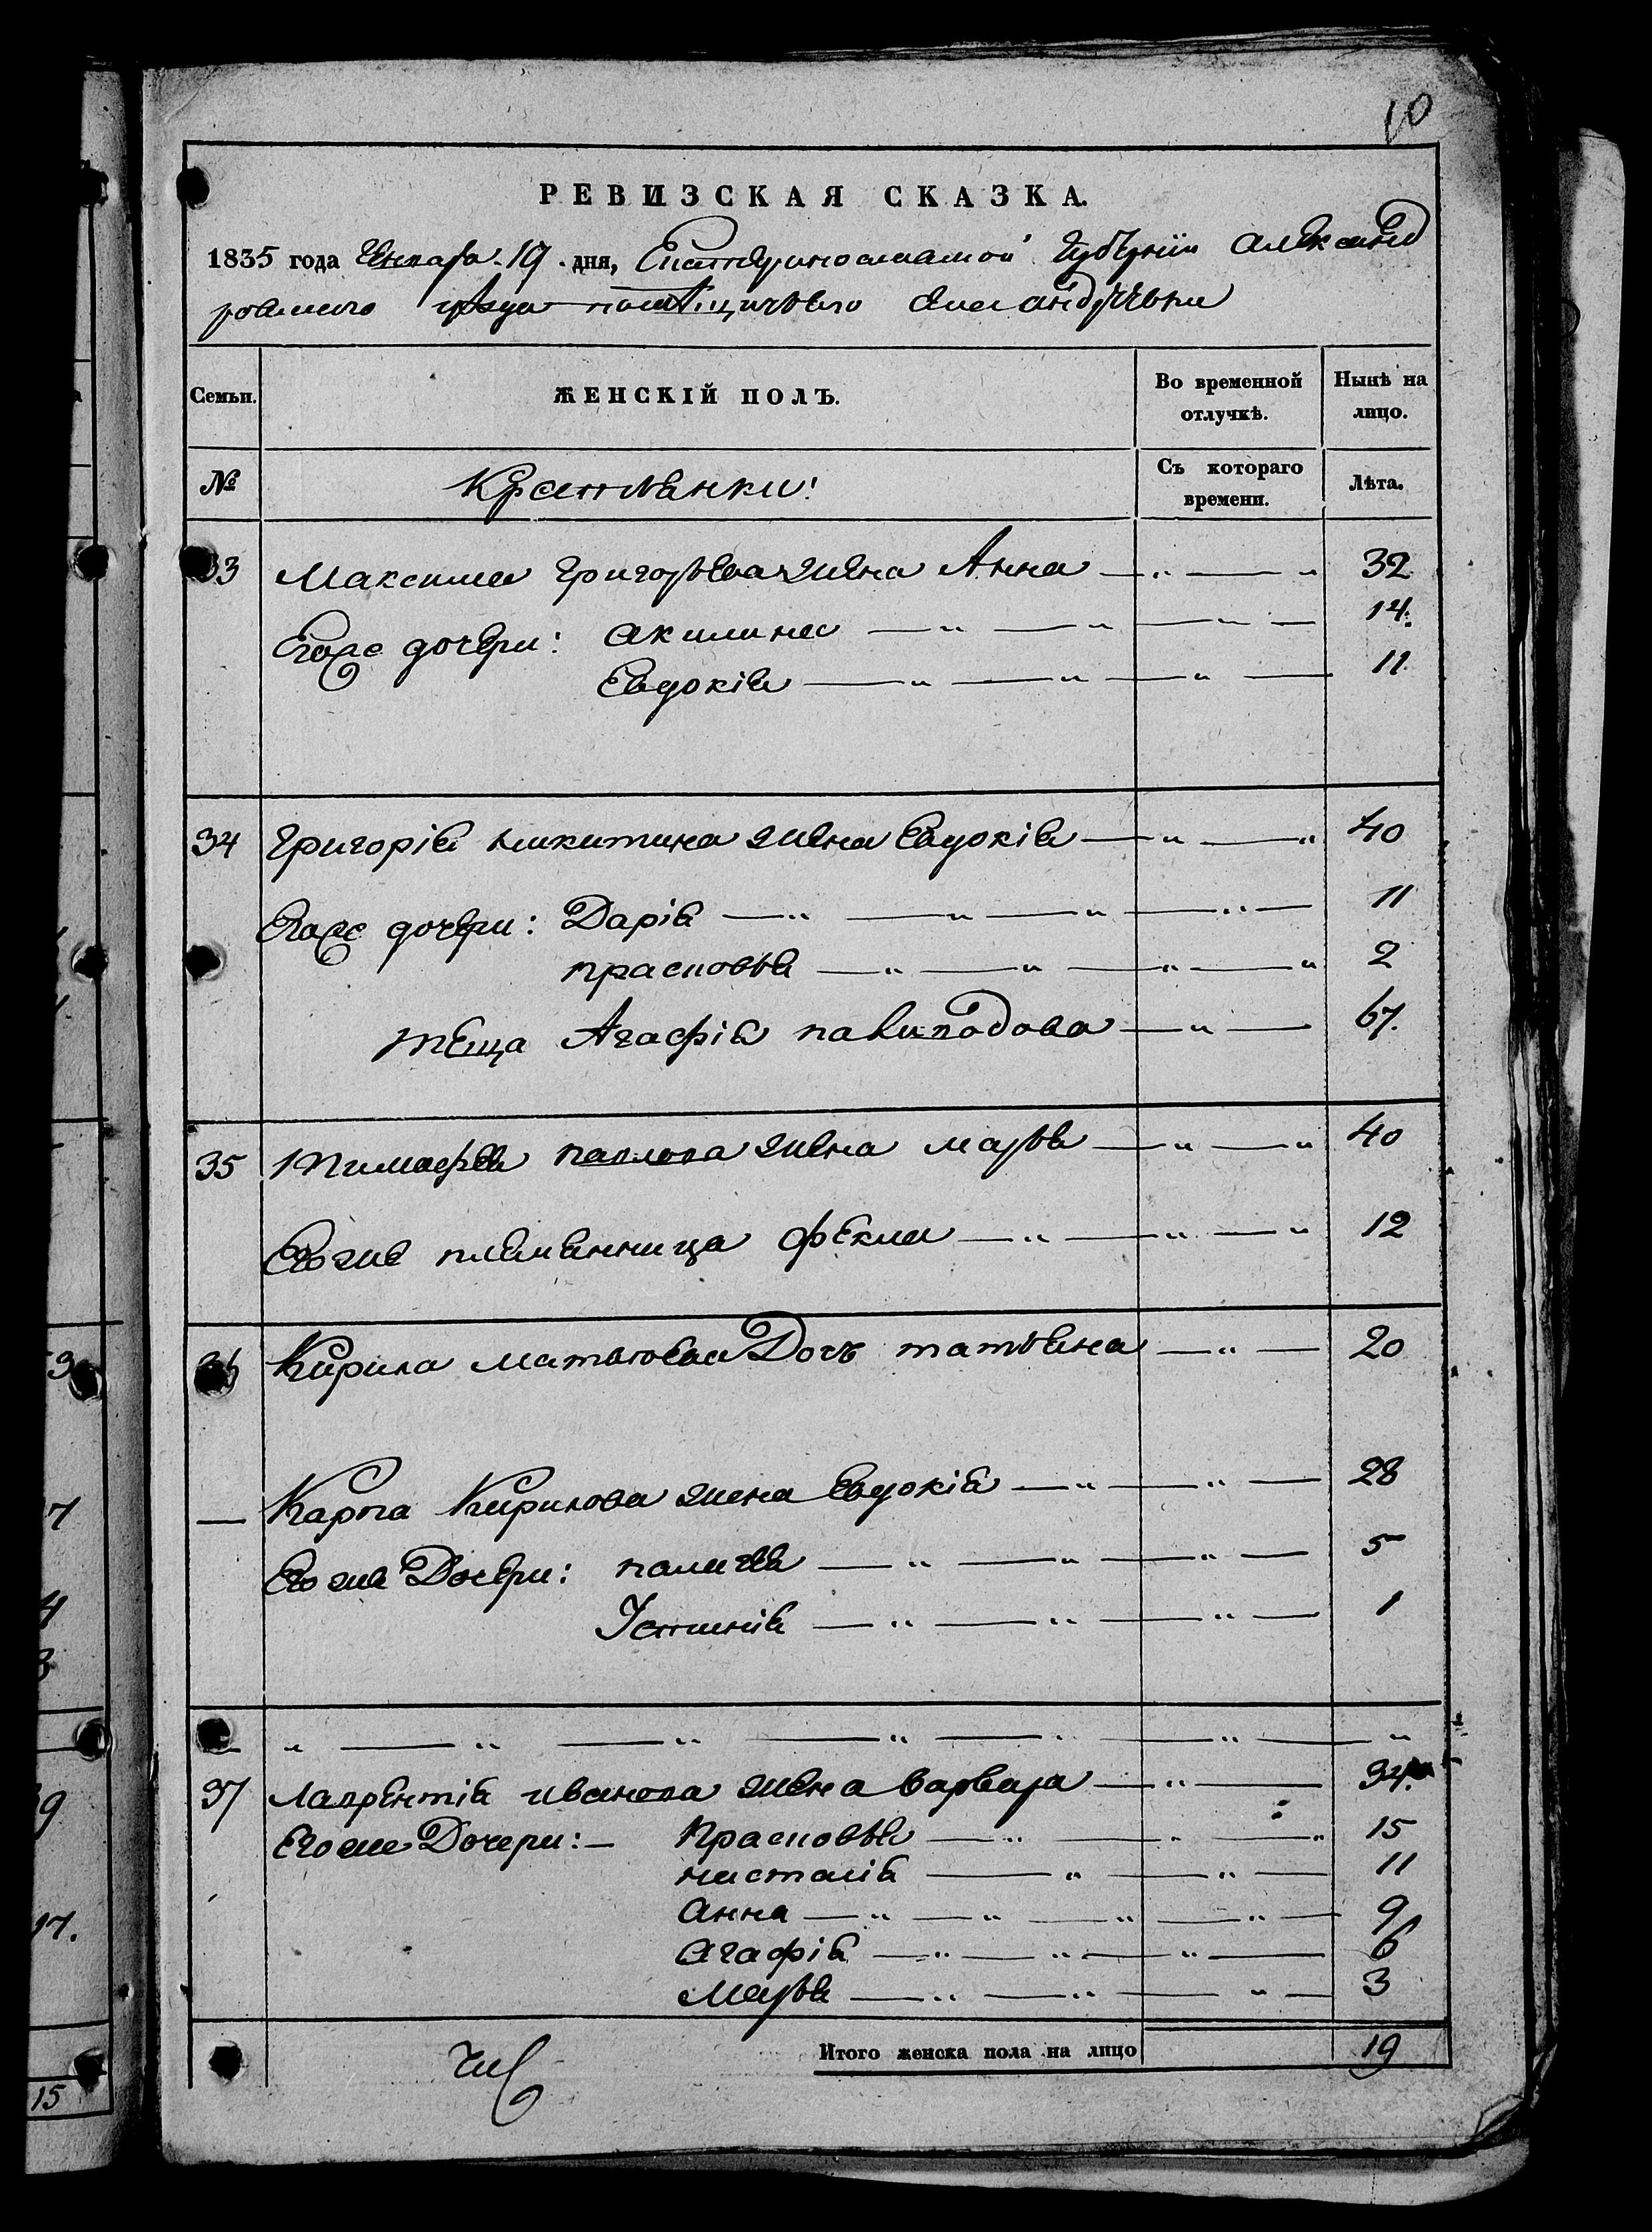 10
РЕВИЗСКАЯ СКАЗКА.
1835 года Генваря 19 дня, Екатеринославской Губерніи Александ
ровского уѣзда
Семьи. ЖЕНСКІЙ ПОЛЪ. Во временной отлучкѣ. Нынѣ на лицо.
№ Крестьянки: Съ котораго времени. Лѣта.
33 Максима Григорьева жена Анна — „ — „ 32
Егоже дочери: Акилина — „ — „ — „ — 14.
Евдокія — „ — „ — „ — 11.
34 Григорія Никитина жена Евдокія — „ — „ 40
Егоже дочери: Дарія — „ — „ — „ — „ — 11
Прасковья — „ — „ — „ — „ 2
теща Агафія — „ — 67.
35 Тимофея Павлова жена Марья — „ — „ 40
Егоже племянница Фекла — „ — „ — „ 12
36 Кирила Матвѣева Дочь татьяна — „ — 20
— Карпа Кирилова жена Евдокія — „ — „ — 28
Егоже Дочери: — „ — „ — „ — 5
Устинія — „ — „ — „ — 1
— „ — „ — „ — „ — „ — „ — „
37 Лаврентія Иванова жена Варвара — „ — 34.
Егоже Дочери: — Прасковья — „ — „ — „ 15
Насталія — „ — „ — 11
Анна — „ — „ — „ — „ — 9
Агафія — „ — „ — „ — 6
Марья — „ — „ — „ — 3
Итого женска пола на лицо 19
15